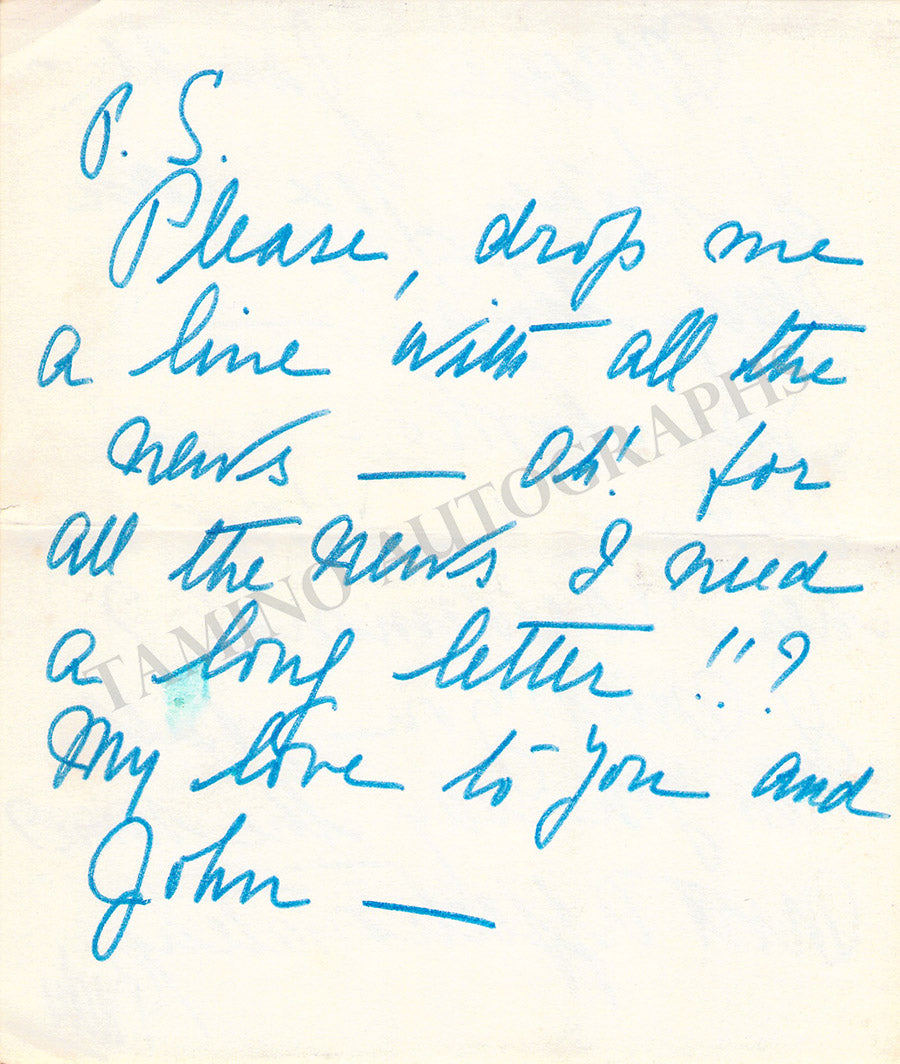 P. S.
Please, drop me
a line with all the
news — Oh! for
all the news I need
a long letter !!?
My love to you and
John —
TAMINO AUTOGRAPHS